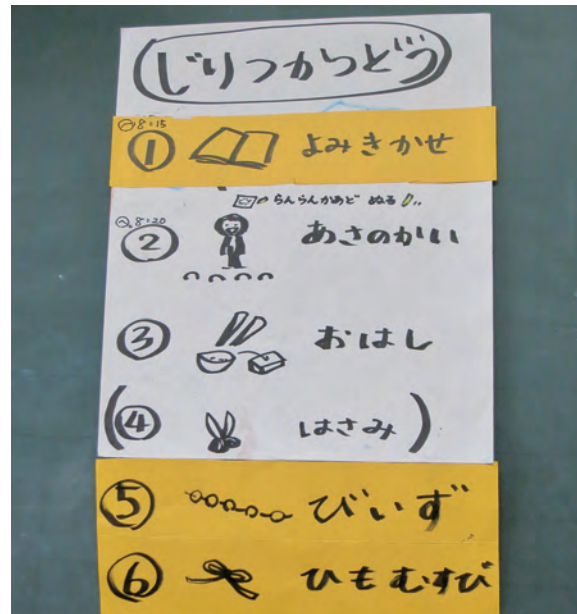 じりつかつどう
8:15
① よみきかせ
らんらんかあど ぬる
8:20
② あさのかい
③ おはし
(④ はさみ)
⑤ びいず
⑥ ひもむすび